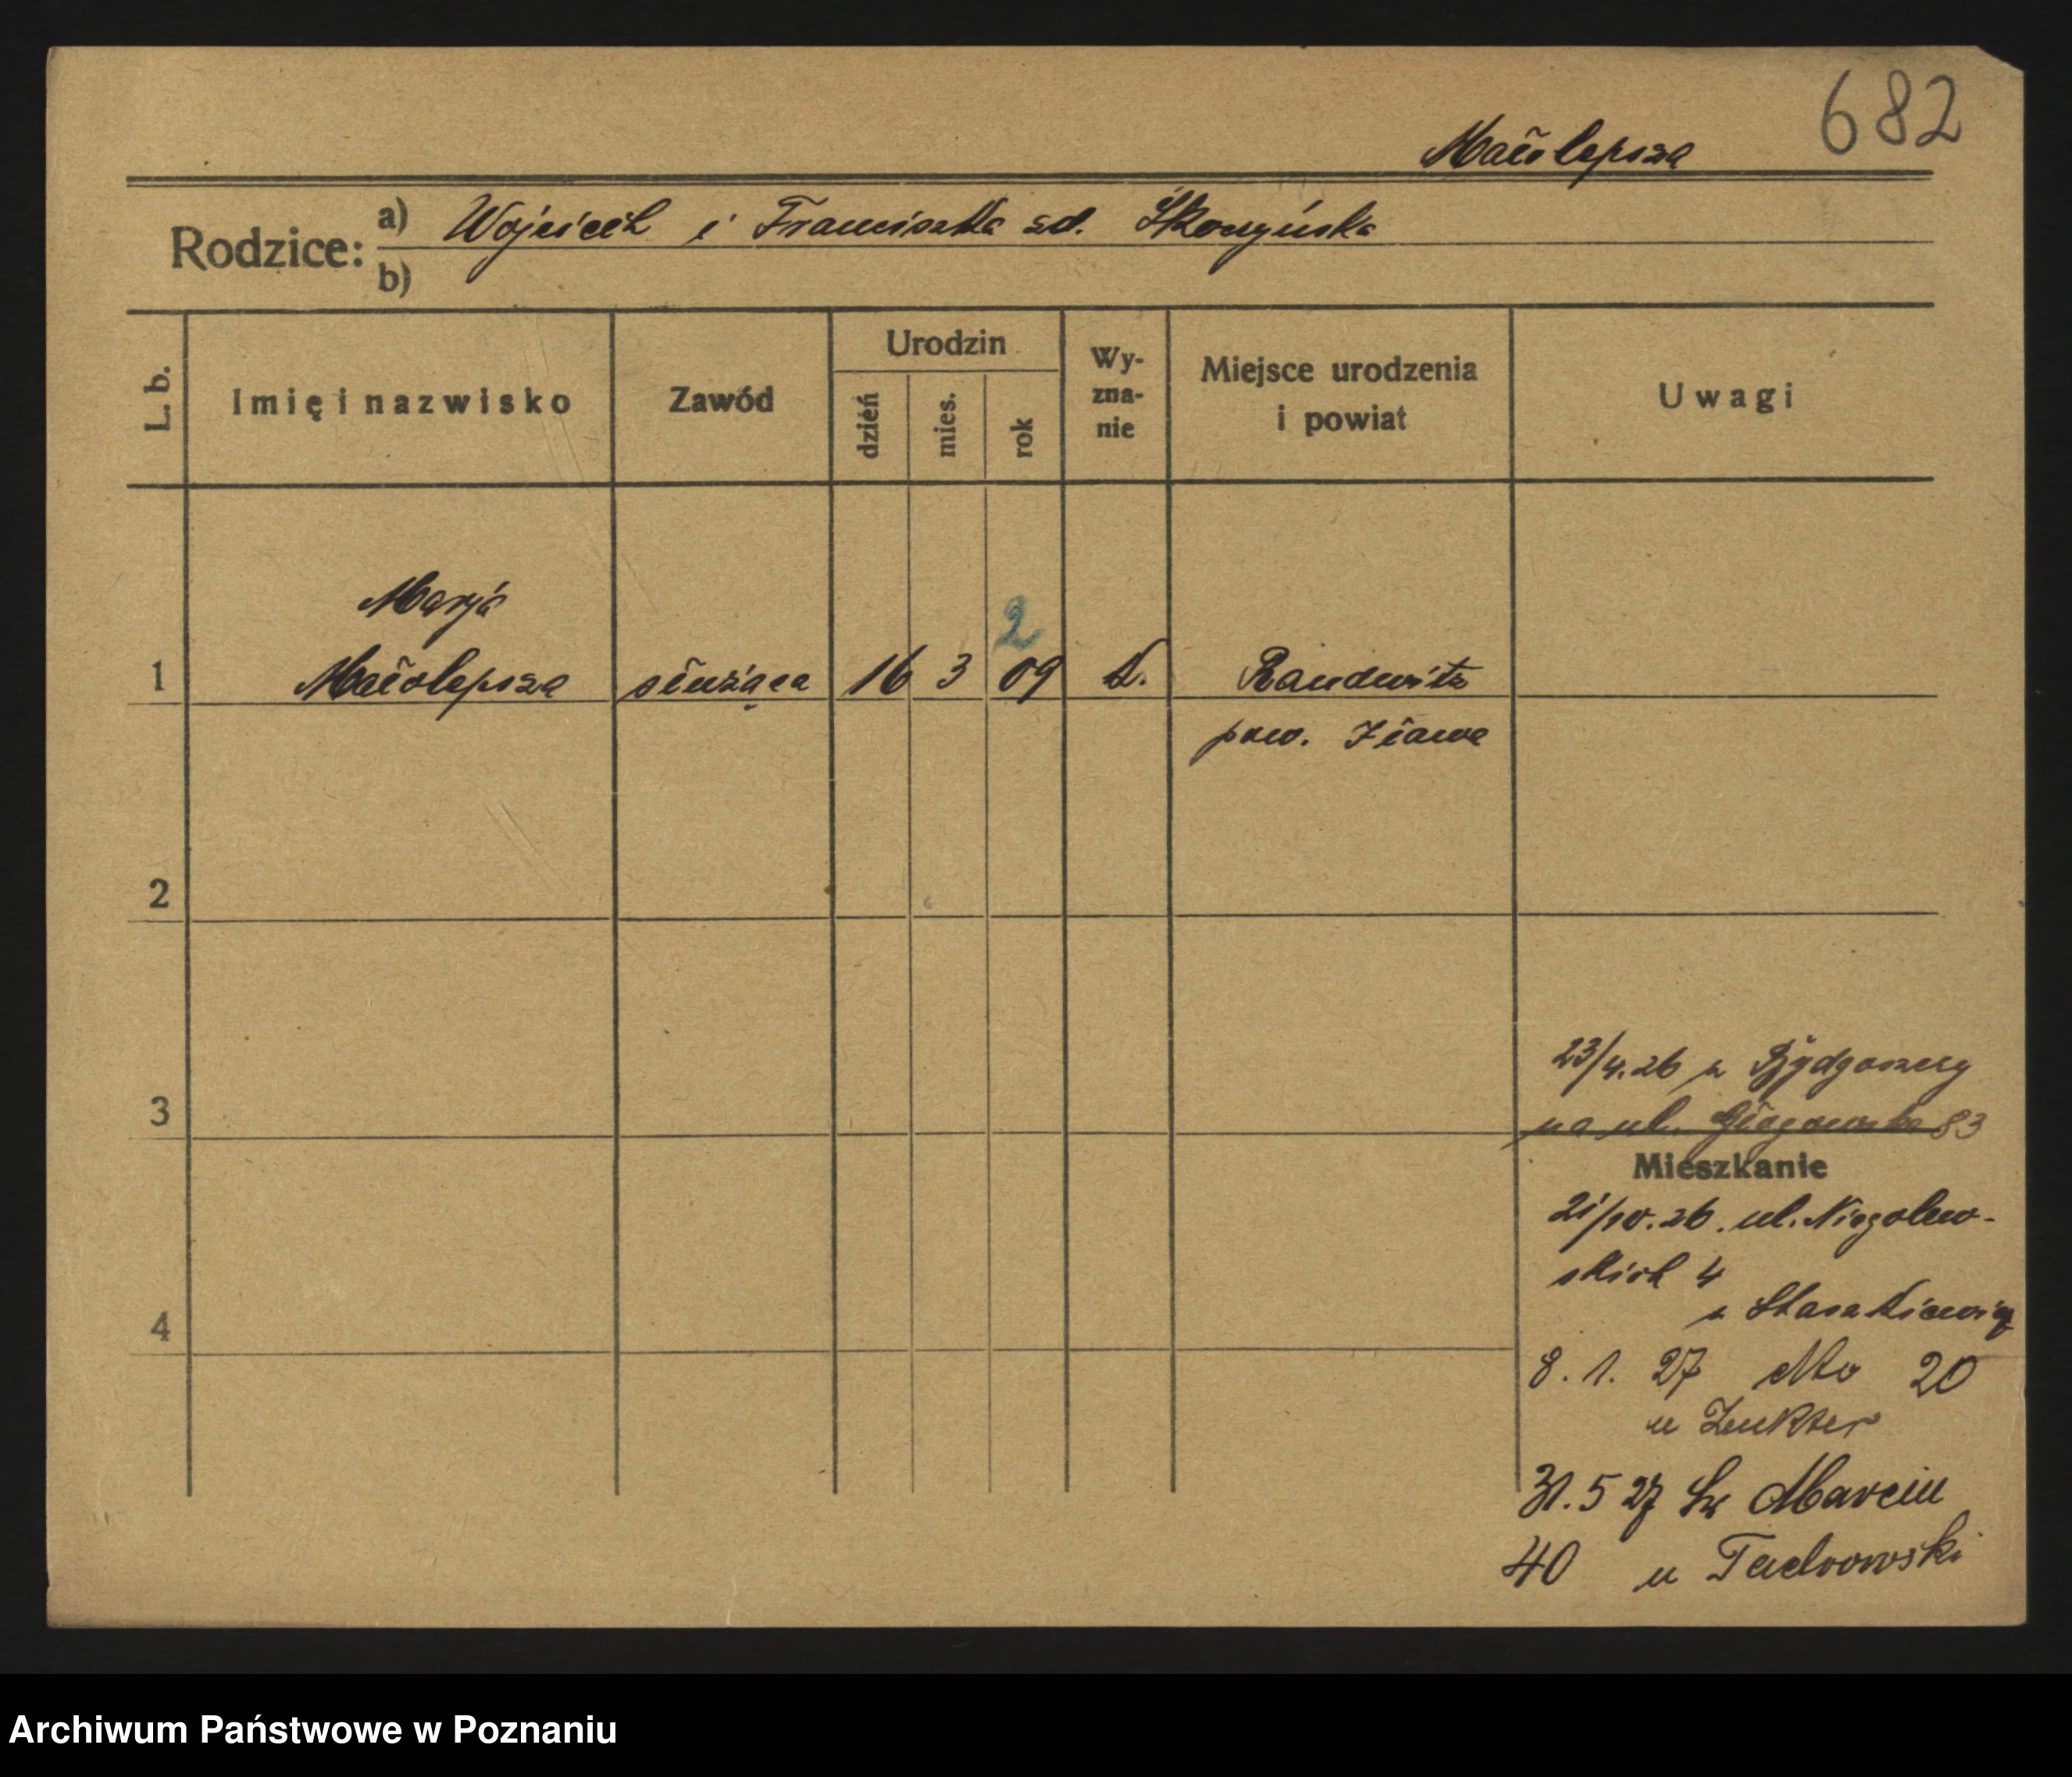 682
Małolepsza
Rodzice: a) Wojciech i Franciszka zd. Skoczyńska
b)
L. b.
Imię i nazwisko
Zawód
Urodzin
dzień
mies.
rok
Wy-
zna-
nie
Miejsce urodzenia
i powiat
Uwagi
Marja
2
1 Małolepsza służąca 16 3 09 k.
pow. Iława
2
23/4.26 z Bydgoszczy
3
na ul. Głogowska 83
Mieszkanie
21/10.26. ul. Niegolew-
skich 4
4
8. 1. 27 20
u
31. 5 27 Św Marcin
40 u
Archiwum Państwowe w Poznaniu